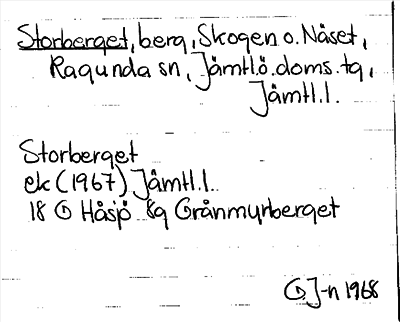 Storberget, berg, Skogen o. Nåset,
Ragunda sn, Jämtl.ö.doms.tg,
Jämtl.l.
Storberget
ek (1967) Jämtl.l.
18 G Håsjö 8g Grånmyrberget
G. J-n 1968